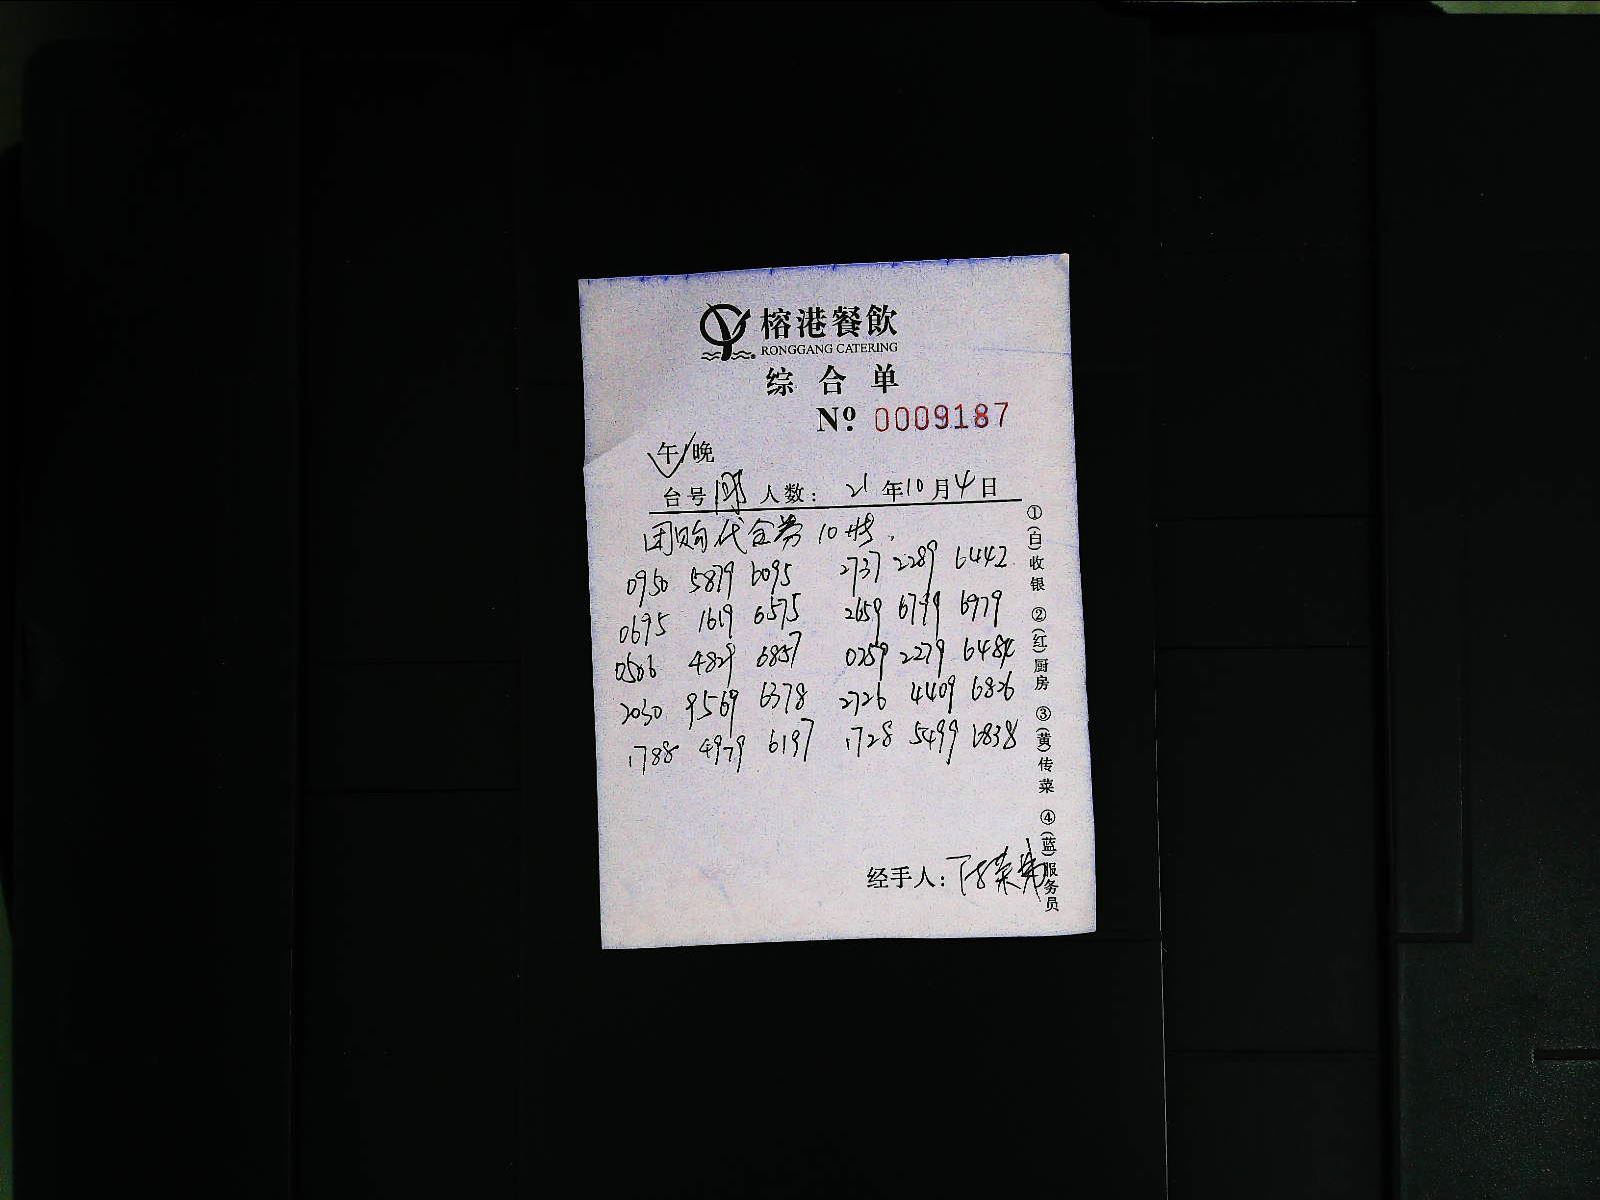 榕港餐飲
RONGGANG CATERING
综合单
Nº. 0009187
午/晚
台号 人数： 21年10月4日
团购代金券10张.
0950 5879 6095 2737 2289 6442
0695 1619 6575 2659 6799 6979
0506 4829 6857 0259 2279 6484
2030 9569 6378 2726 4409 6826
1788 4979 6197 1728 5499 6838
经手人：
①(白)收银 ②(红)厨房 ③(黄)传菜 ④(蓝)服务员